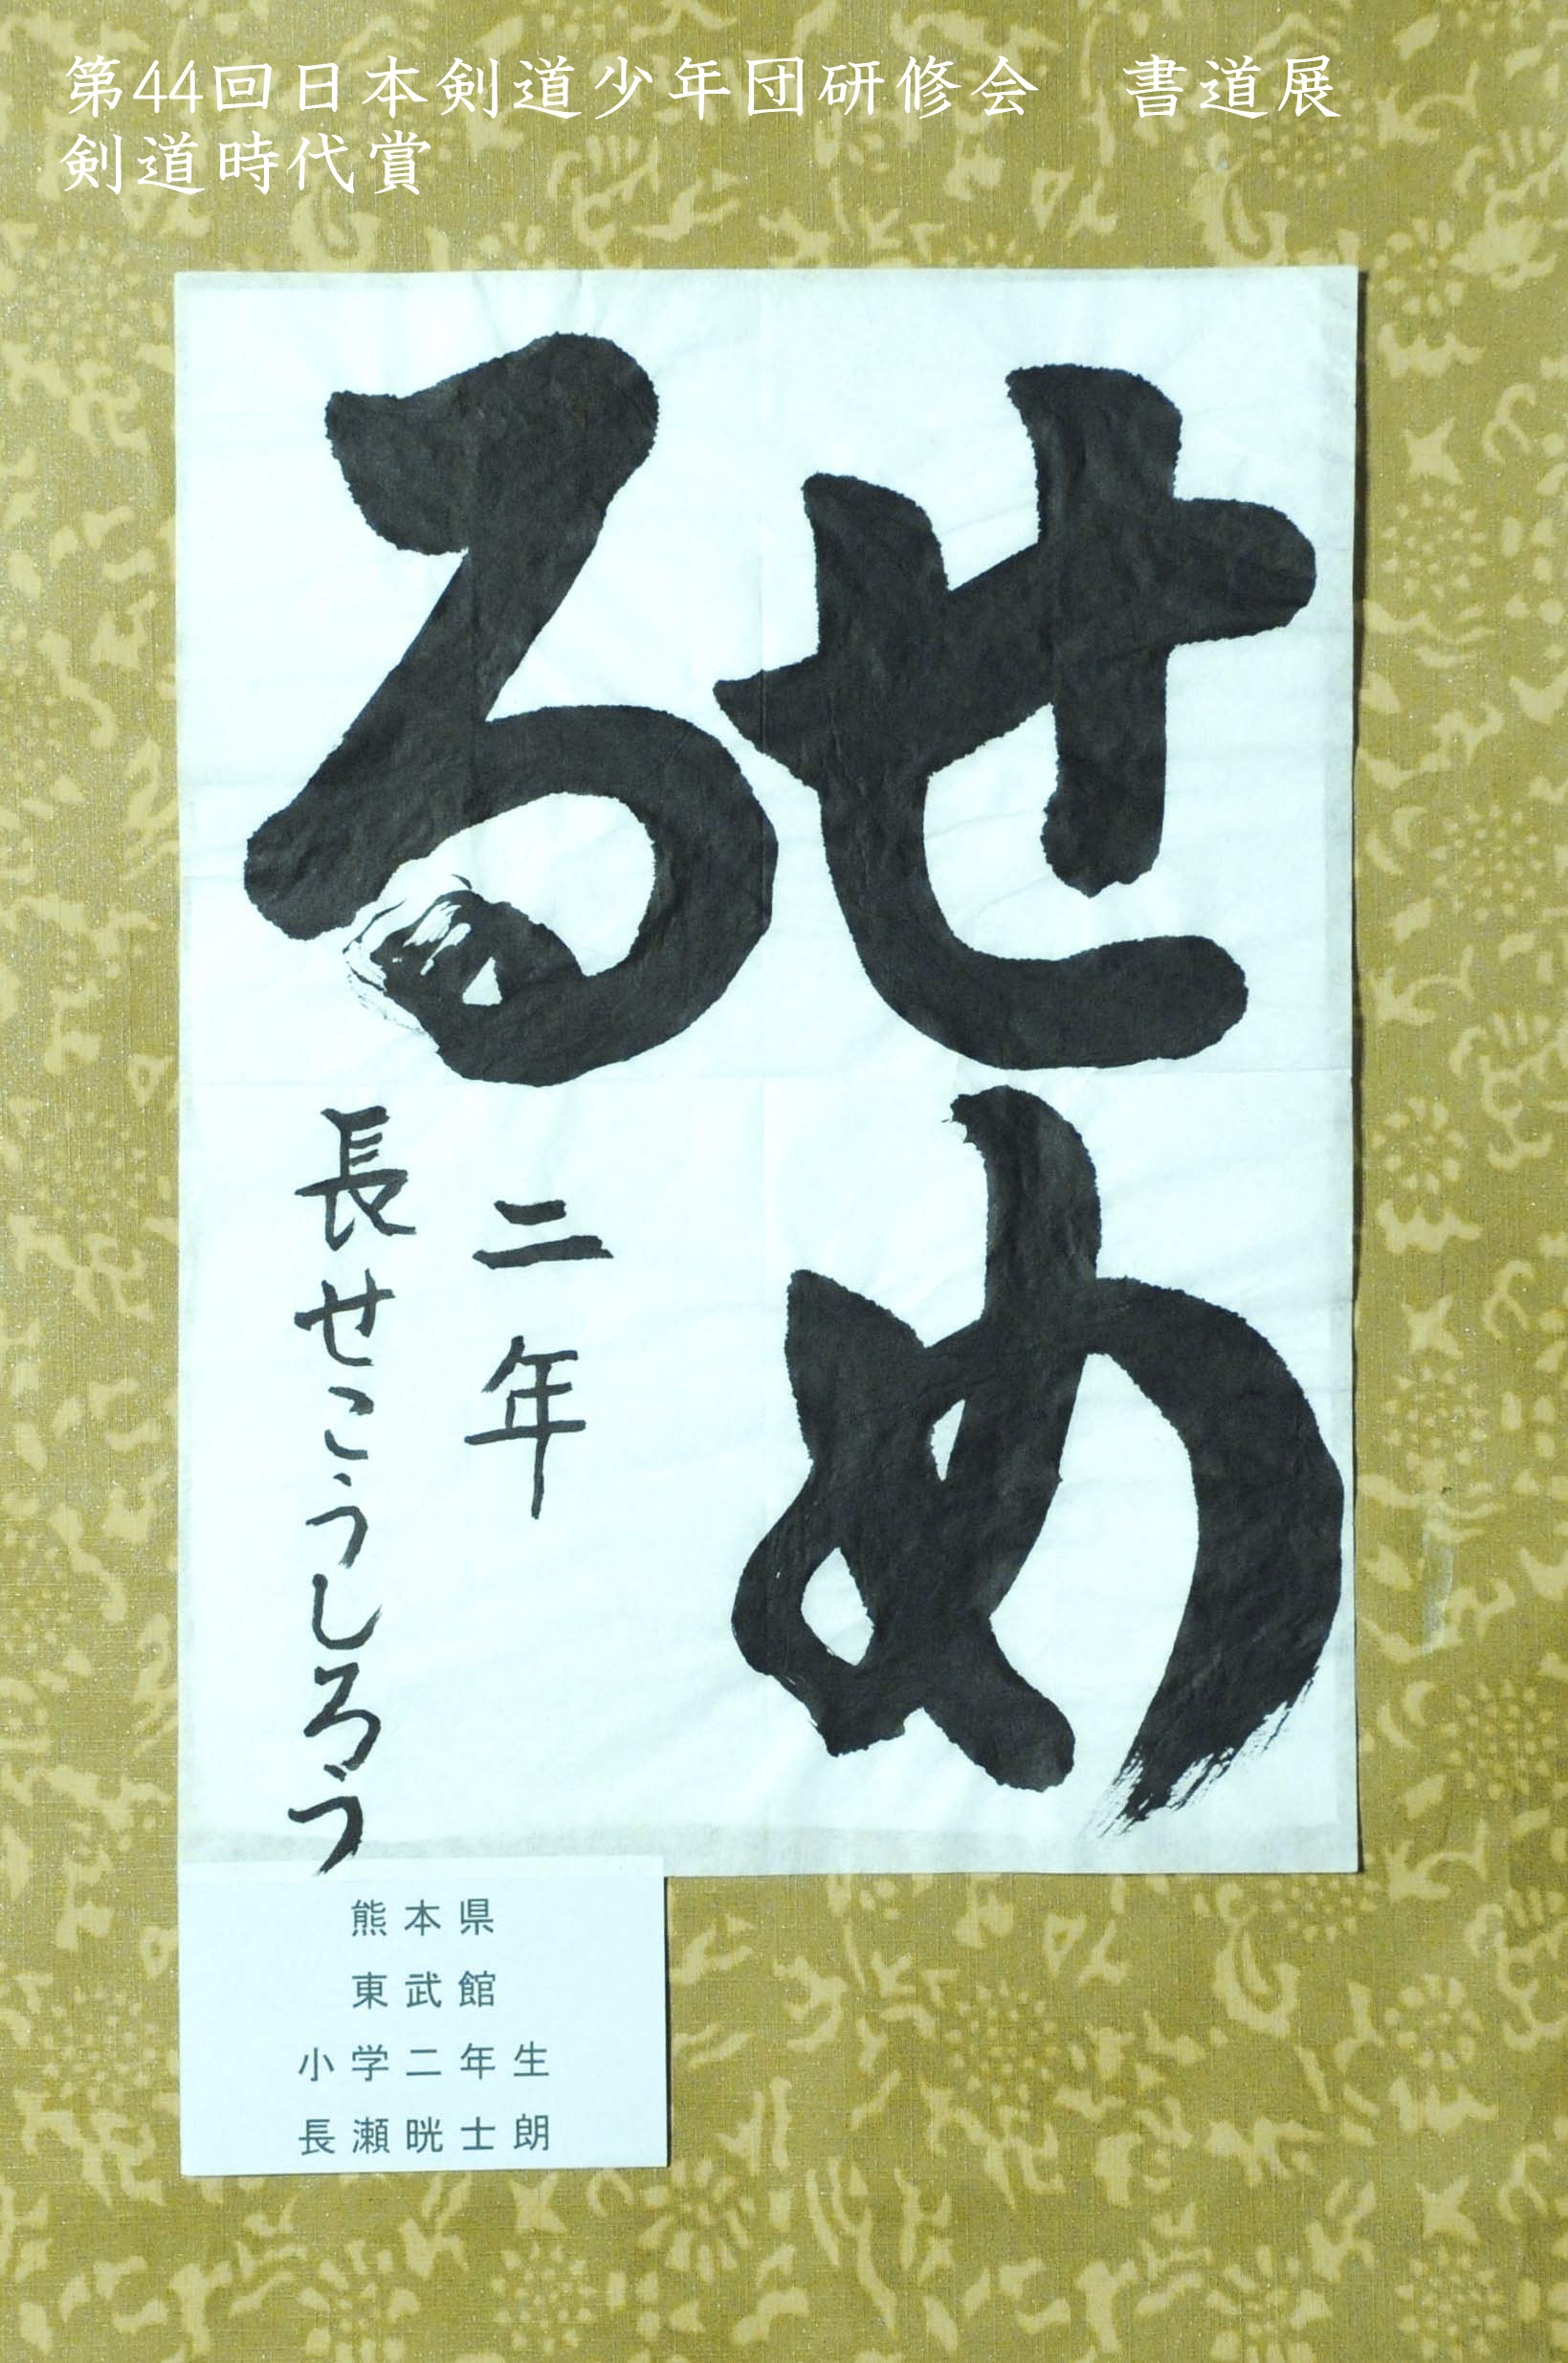 第44回日本剣道少年団研修会　書道展
剣道時代賞
せめ
る
二年
長せこうしろう
熊本県
東武館
小学二年生
長瀬晄士朗